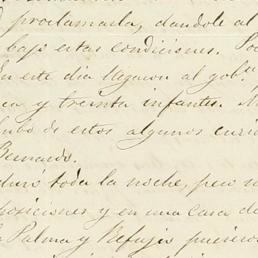 proclamada, dandole al
bajo estas condiciones.
En este dia llegaron al gobn.
y treinta infantes.
hubo de estos algunos
Bernardo.
toda la noche, pero
posiciones y en una casa de
Palma y Refugio